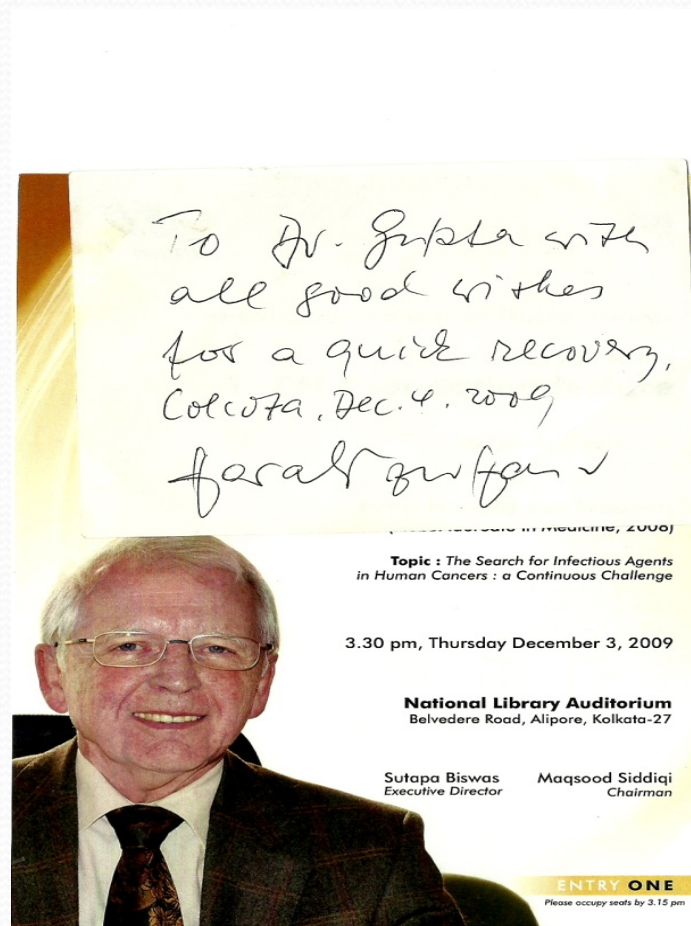 To Dr. Gupta with
all good wishes
for a quick recovery.
Colcota, Dec. 4. 2009
Harald zur Hausen
(Nobel laureate in Medicine, 2008)
Topic : The Search for Infectious Agents
in Human Cancers : a Continuous Challenge
3.30 pm, Thursday December 3, 2009
National Library Auditorium
Belvedere Road, Alipore, Kolkata-27
Sutapa Biswas Maqsood Siddiqi
Executive Director Chairman
ENTRY ONE
Please occupy seats by 3.15 pm